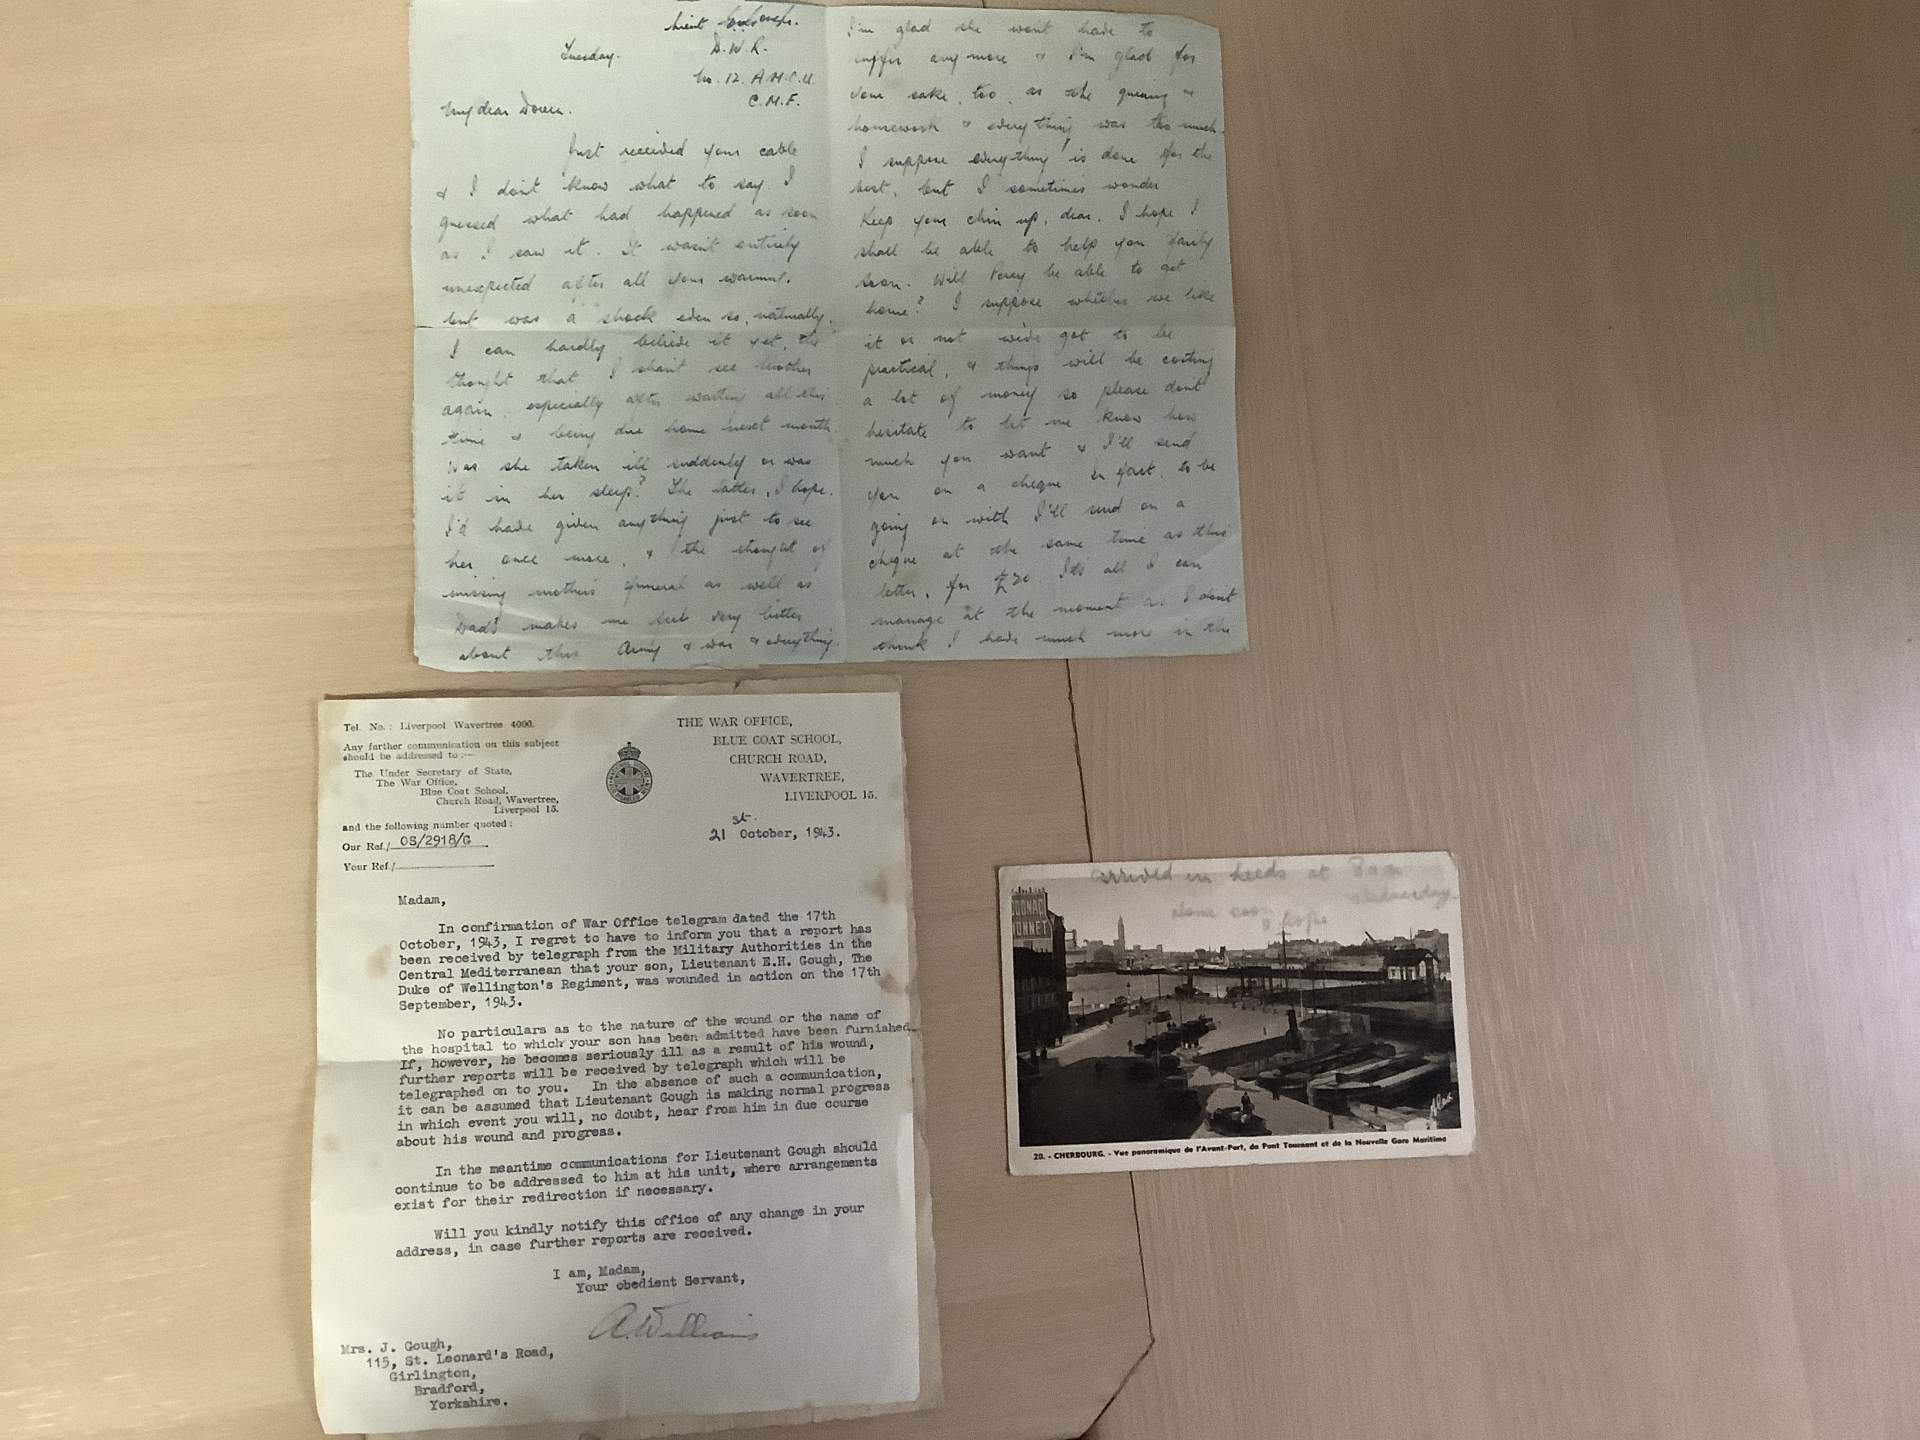 Lieut Gough.
D.W.R.
Tuesday.
No. 12. A.M.C.U.
C.M.F.
My dear Doreen.
Just received your cable
& I don't know what to say. I
guessed what had happened as soon
as I saw it. It wasn't entirely
unexpected after all your warning.
but was a shock even so, naturally.
I can hardly believe it yet, the
thought that I shan't see Mother
again, especially after waiting all this
time & being due home next month.
Was she taken ill suddenly or was
it in her sleep? The latter, I hope.
I'd have given anything just to see
her once more, & the thought of
missing mother's funeral as well as
Dad's makes me feel very bitter
about this Army & war & everything.
I'm glad she won't have to
suffer any more & I'm glad for
your sake, too, as the nursing &
homework & everything was too much.
I suppose everything is done for the
best, but I sometimes wonder
Keep your chin up, dear. I hope I
shall be able to help you fairly
soon. Will Percy be able to get
home? I suppose whether we like
it or not we've got to be
practical, & things will be costing
a lot of money so please don't
hesitate to let me know how
much you want & I'll send
you on a cheque. In fact, to be
going on with I'll send on a
cheque at the same time as this
letter, for £20. It's all I can
manage at the moment as I don't
think I have much more in the
Tel. No.: Liverpool Wavertree 4000.
Any further communication on this subject
should be addressed to:—
The Under Secretary of State,
The War Office,
Blue Coat School,
Church Road, Wavertree,
Liverpool 15.
and the following number quoted:
Our Ref./ OS/2918/G
Your Ref./
THE WAR OFFICE,
BLUE COAT SCHOOL,
CHURCH ROAD,
WAVERTREE,
LIVERPOOL 15.
21st October, 1943.
Madam,
In confirmation of War Office telegram dated the 17th
October, 1943, I regret to have to inform you that a report has
been received by telegraph from the Military Authorities in the
Central Mediterranean that your son, Lieutenant E.H. Gough, The
Duke of Wellington's Regiment, was wounded in action on the 17th
September, 1943.
No particulars as to the nature of the wound or the name of
the hospital to which your son has been admitted have been furnished.
If, however, he becomes seriously ill as a result of his wound,
further reports will be received by telegraph which will be
telegraphed on to you. In the absence of such a communication,
it can be assumed that Lieutenant Gough is making normal progress
in which event you will, no doubt, hear from him in due course
about his wound and progress.
In the meantime communications for Lieutenant Gough should
continue to be addressed to him at his unit, where arrangements
exist for their redirection if necessary.
Will you kindly notify this office of any change in your
address, in case further reports are received.
I am, Madam,
Your obedient Servant,
A. Williams
Mrs. J. Gough,
115, St. Leonard's Road,
Girlington,
Bradford,
Yorkshire.
arrived in Leeds at 8 am
Wednesday.
Home soon
I hope
20. - CHERBOURG. - Vue panoramique de l'Avant-Port, du Pont Tournant et de la Nouvelle Gare Maritime